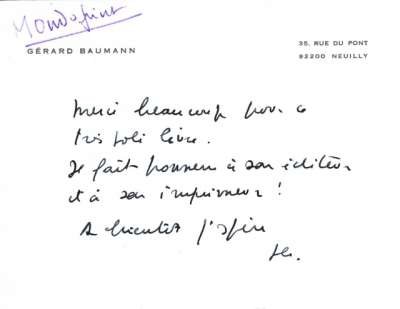 Mondoprint
GÉRARD BAUMANN
35, RUE DU PONT
92200 NEUILLY
Merci beaucoup pour ce
très joli livre.
Il fait honneur à son éditeur
et à son imprimeur !
A bientôt j'espère